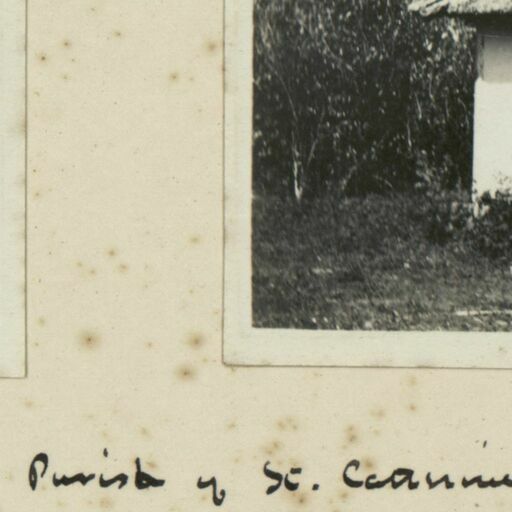 Parish of St. Catherine